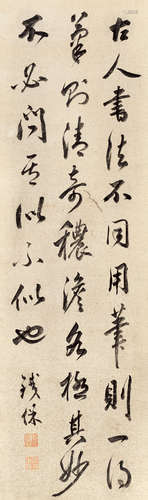 古人書法不同用筆則一得
筆則清奇穠澹各極其妙
不必問其似不似也
鐵保